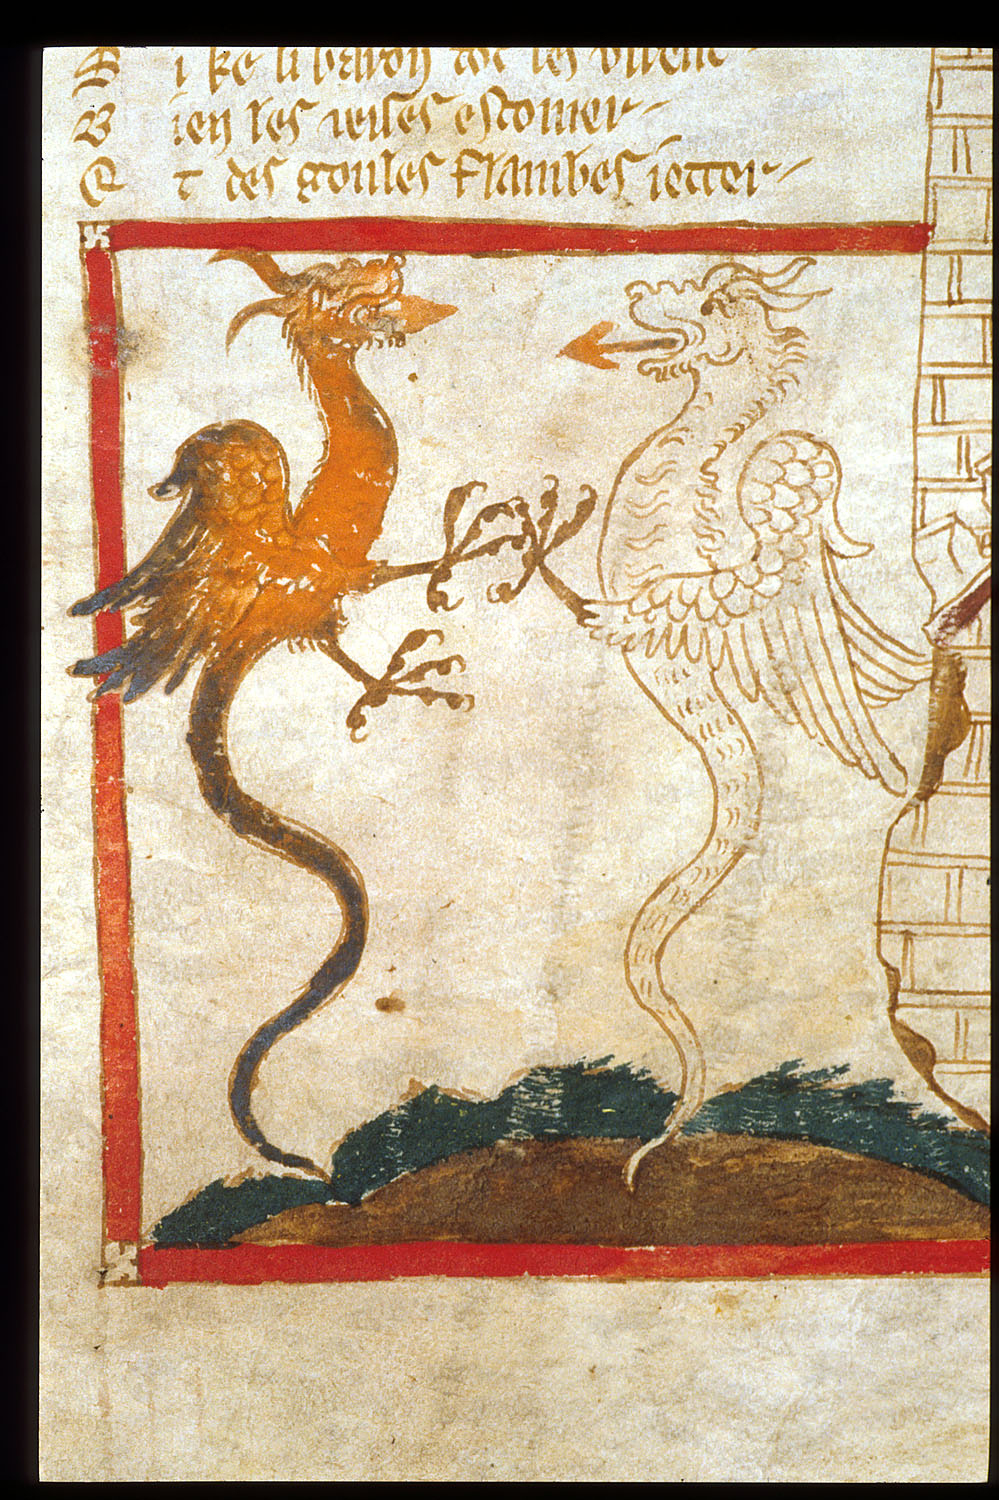 S i ke li baron tot les virent
B ien les testes escouer
E t des goules flambes ietter